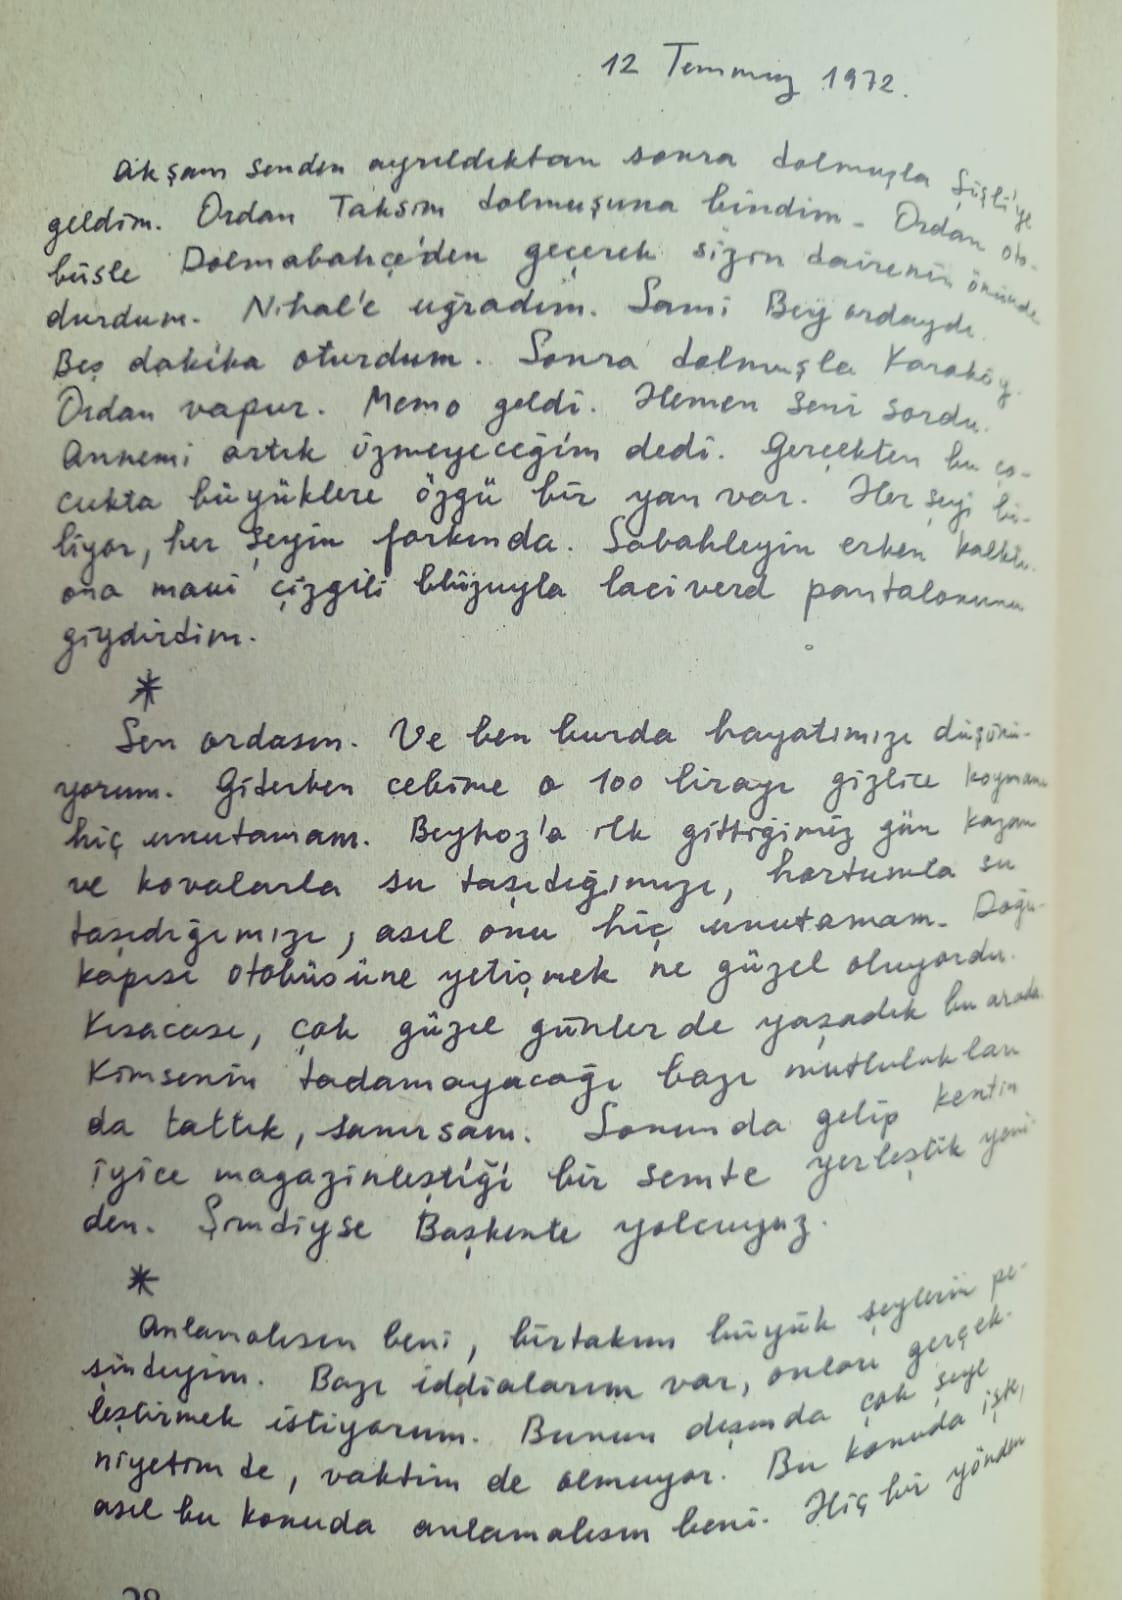 12 Temmuz 1972.
Akşam senden ayrıldıktan sonra dolmuşla Şişli'ye
geldim. Ordan Taksim dolmuşuna bindim. Ordan oto-
büsle Dolmabahçe'den geçerek sizin dairenin önünde
durdum. Nihal'e uğradım. Sami Bey ordaydı.
Beş dakika oturdum. Sonra dolmuşla Karaköy.
Ordan vapur. Memo geldi. Hemen seni sordu.
Annemi artık üzmeyeceğim dedi. Gerçekten bu ço-
cukta büyüklere özgü bir yan var. Her şeyi bi-
liyor, her şeyin farkında. Sabahleyin erken kalktı.
ona mavi çizgili blûzuyla laciverd pantalonunu
giydirdim.
*
Sen ordasın. Ve ben burda hayatımızı düşünü-
yorum. Giderken cebime o 100 lirayı gizlice koymanı
hiç unutamam. Beykoz'a ilk gittiğimiz gün kazan
ve kovalarla su taşıdığımızı, hortumla su
taşıdığımızı, asıl onu hiç unutamam. Doğu-
kapısı otobüsüne yetişmek ne güzel oluyordu.
Kısacası, çok güzel günler de yaşadık bu arada.
Kimsenin tadamayacağı bazı mutlulukları
da tattık, sanırsam. Sonunda gelip kentin
iyice magazinleştiği bir semte yerleştik yeni-
den. Şimdiyse Başkente yolcuyuz.
*
Anlamalısın beni, birtakım büyük şeylerin pe-
şindeyim. Bazı iddialarım var, onları gerçek-
leştirmek istiyorum. Bunun dışında çok şeye
niyetim de, vaktim de olmuyor. Bu konuda işte,
asıl bu konuda anlamalısın beni. Hiç bir yönden
28